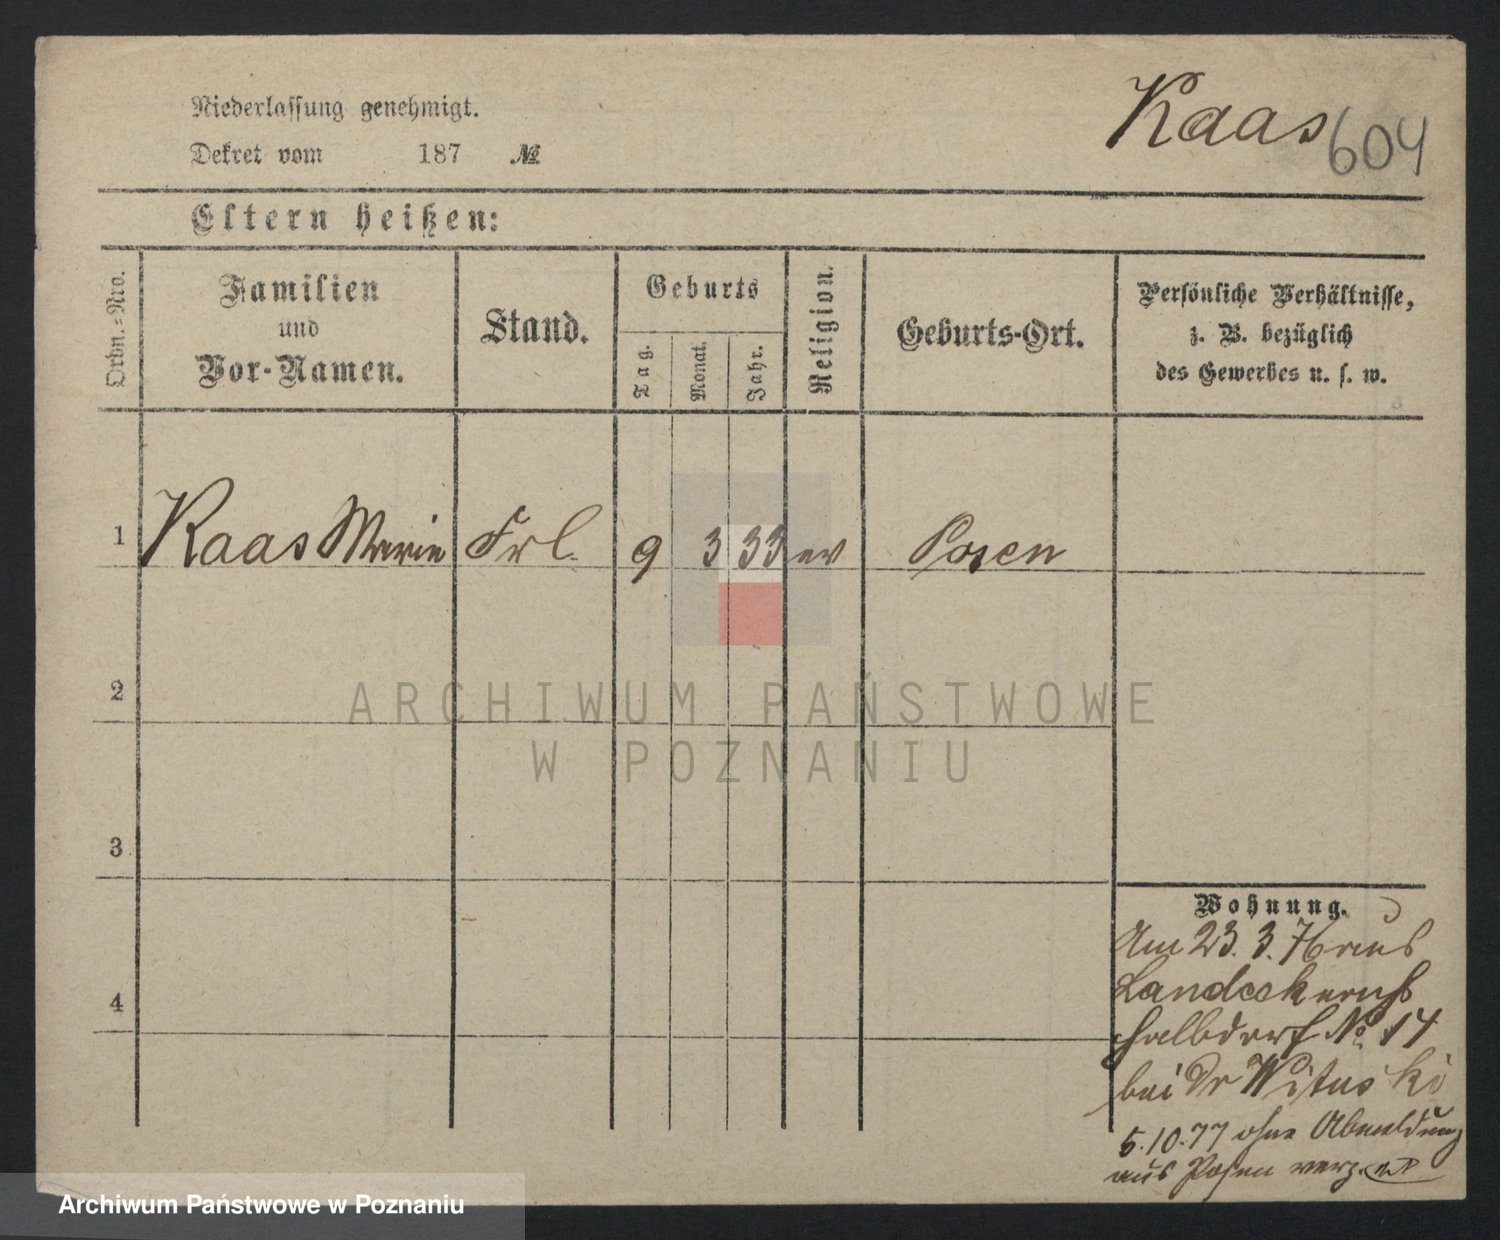 Kaas 604
Niederlassung genehmigt.
Dekret vom 187 №
Eltern heißen:
Ordn.=Nro.
Familien
und
Vor-Namen.
Stand.
Geburts
Tag.
Monat.
Jahr.
Religion.
Geburts-Ort.
Persönliche Verhältnisse,
z. B. bezüglich
des Gewerbes u. s. w.
1 Kaas Marie Frl. 9 3 33 ev Posen
2
3
4
Wohnung.
Am 23. 3. 76 aus
Landeck nach
Halbdorf No 14
bei Dr Wituski
5.10.77 ohne Abmeldung
aus Posen verz.
ARCHIWUM PAŃSTWOWE
W POZNANIU
Archiwum Państwowe w Poznaniu